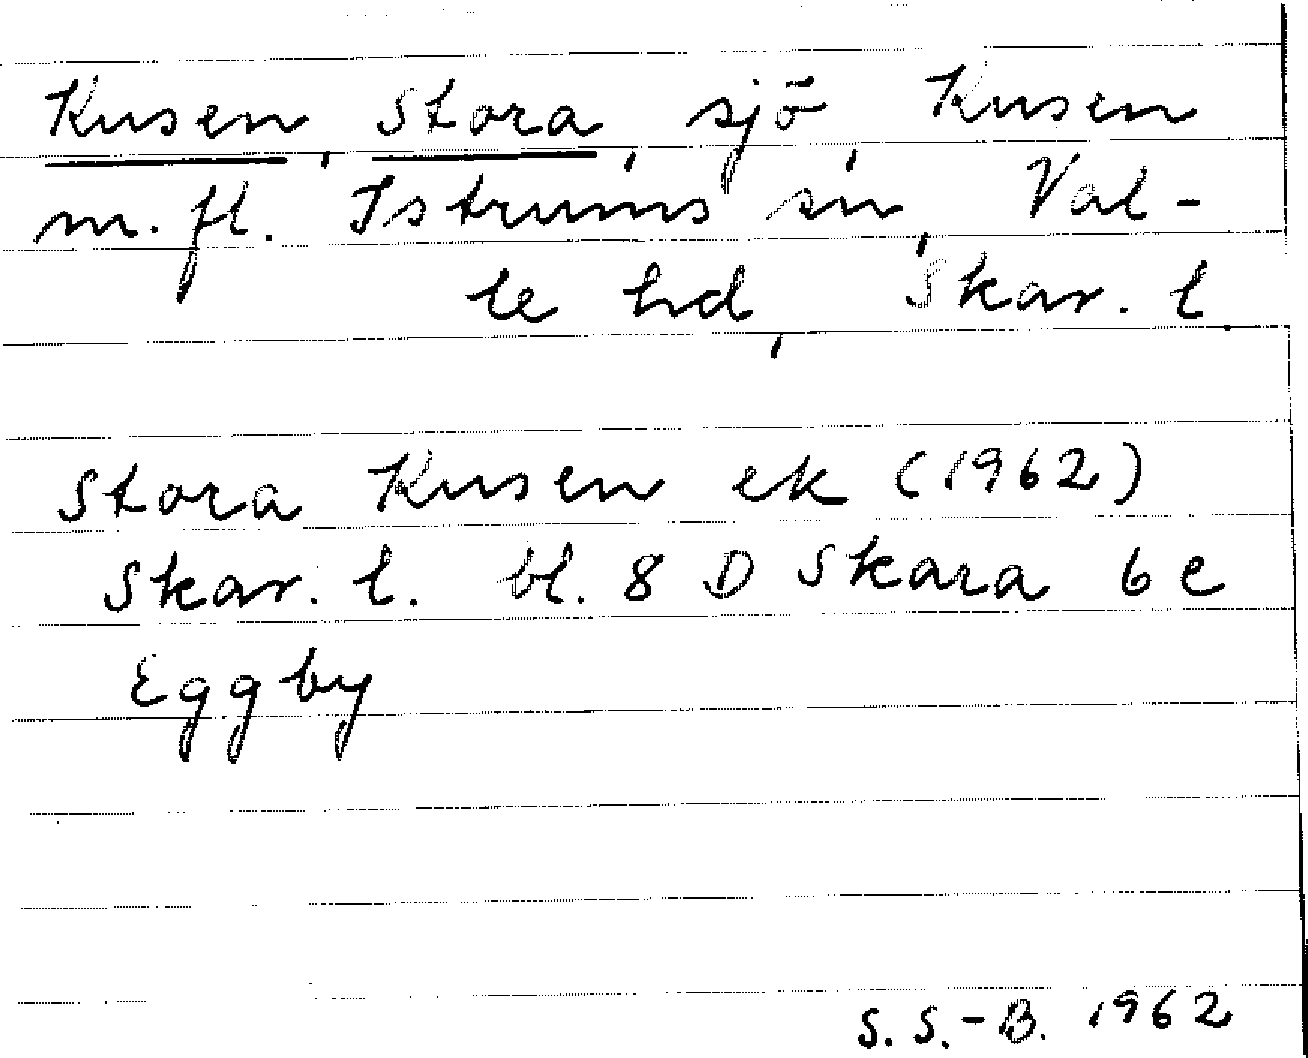 Kusen, Stora, sjö, Kusen
m. fl. Istrums sn, Val-
le hd, Skar. l.
Stora Kusen ek (1962)
Skar. l. bl. 8 D Skara 6 e
Eggby
S. S.-B. 1962